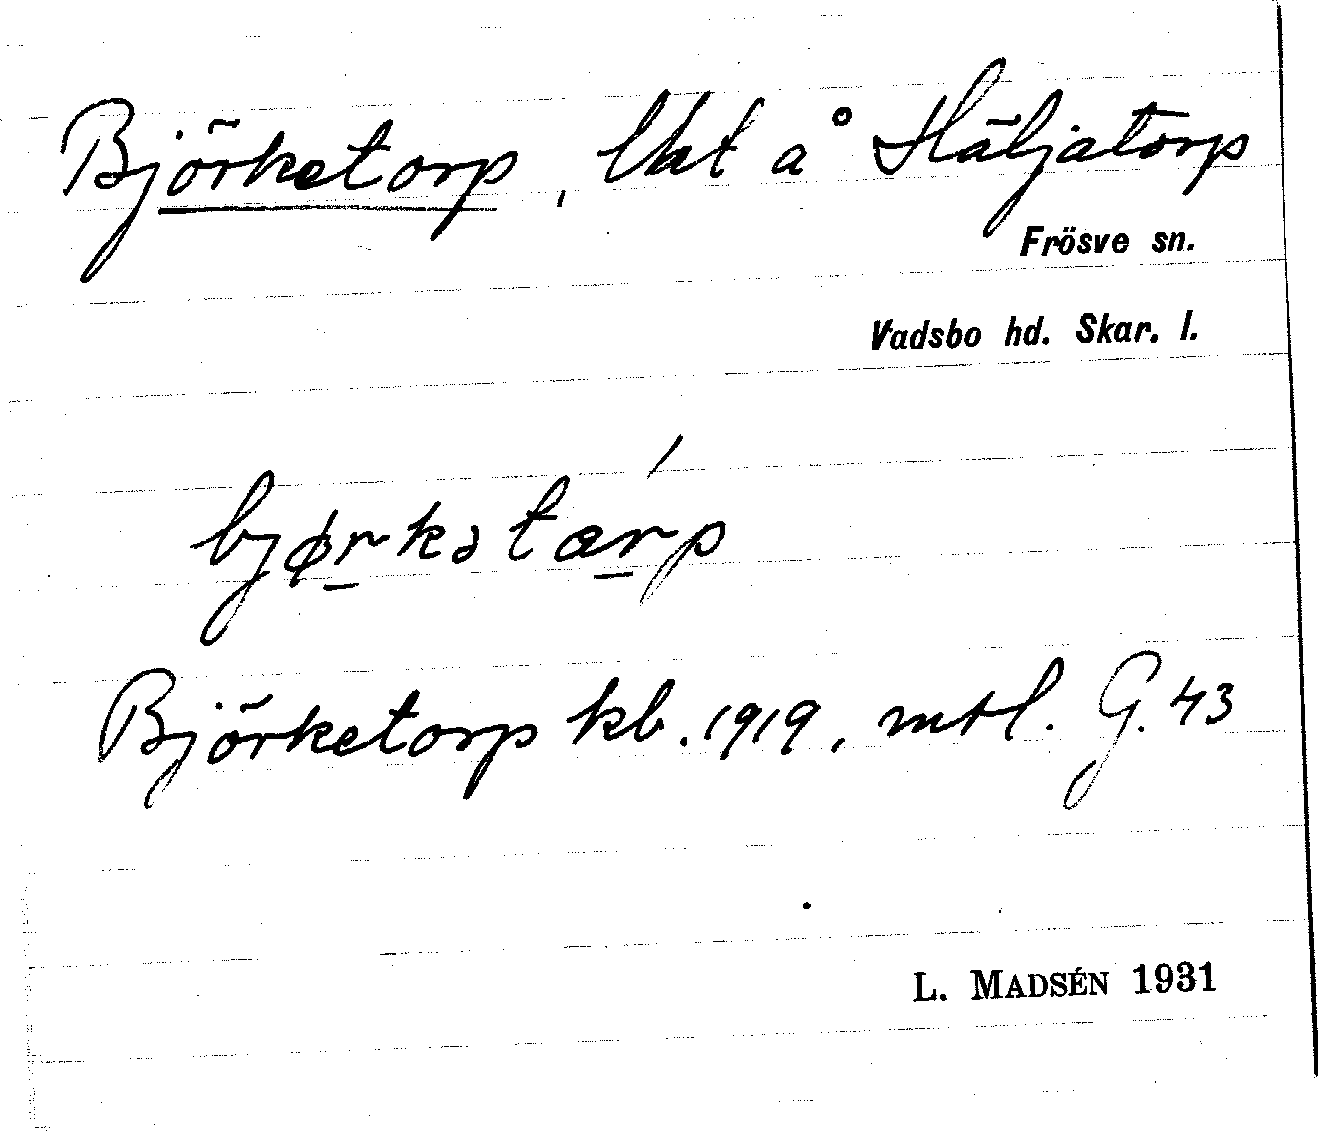 Björketorp, Ukt å Häljatorp
Frösve sn.
Vadsbo hd. Skar. l.
bjørkətærp
Björketorp kb. 1919, mtl. G. 43
L. MADSÉN 1931